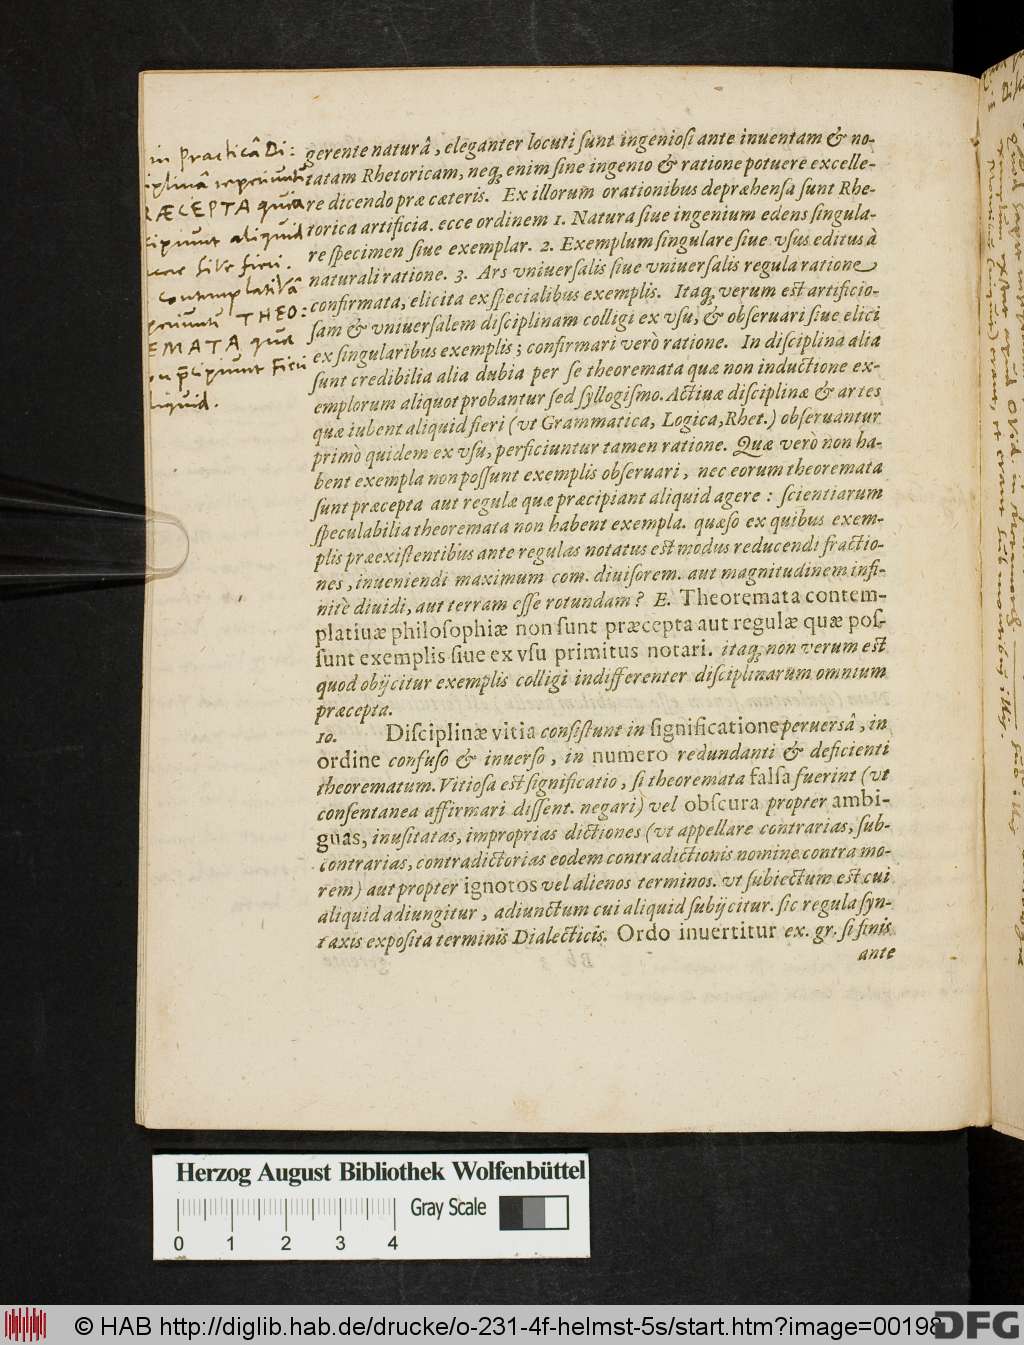 in Practicâ Di:
iplinâ reperiuntur
RÆCEPTA quia
cipiunt aliquid
sive fieri.
contemplativâ
periuntur THEO:
EMATA quæ
præcipiunt fieri
liquid.
gerente naturâ, eleganter locuti ſunt ingenioſi ante inuentam & no-
tatam Rhetoricam, neq; enim ſine ingenio & ratione potuere excelle-
re dicendo præ cæteris. Ex illorum orationibus depræhenſa ſunt Rhe-
torica artificia. ecce ordinem 1. Natura ſiue ingenium edens ſingula-
re ſpecimen ſiue exemplar. 2. Exemplum ſingulare ſiue vſus editus à
naturali ratione. 3. Ars vniuerſalis ſiue vniuerſalis regula ratione
confirmata, elicita ex ſpecialibus exemplis. Itaq; verum est artificio-
ſam & vniuerſalem diſciplinam colligi ex vſu, & obſeruari ſiue elici
ex ſingularibus exemplis; confirmari verò ratione. In diſciplina alia
ſunt credibilia alia dubia per ſe theoremata quæ non inductione ex-
emplorum aliquot probantur ſed ſyllogiſmo. Actiuæ diſciplinæ & artes
quæ iubent aliquid fieri (vt Grammatica, Logica, Rhet.) obſeruantur
primò quidem ex vſu, perficiuntur tamen ratione. Quæ verò non ha-
bent exempla non poſſunt exemplis obſeruari, nec eorum theoremata
ſunt præcepta aut regulæ quæ præcipiant aliquid agere: ſcientiarum
ſpeculabilia theoremata non habent exempla. quæſo ex quibus exem-
plis præexiſtentibus ante regulas notatus est modus reducendi fractio-
nes, inueniendi maximum com. diuiſorem. aut magnitudinem infi-
nitè diuidi, aut terram eſſe rotundam? E. Theoremata contem-
platiuæ philoſophiæ non ſunt præcepta aut regulæ quæ poſ-
ſunt exemplis ſiue ex vſu primitus notari. itaq; non verum est
quod obijcitur exemplis colligi indifferenter diſciplinarum omnium
præcepta.
10. Diſciplinæ vitia conſiſtunt in ſignificatione peruersâ, in
ordine confuſo & inuerſo, in numero redundanti & deficienti
theorematum. Vitioſa est ſignificatio, ſi theoremata falſa fuerint (vt
conſentanea affirmari diſſent. negari) vel obſcura propter ambi-
guas, inuſitatas, improprias dictiones (vt appellare contrarias, ſub-
contrarias, contradictorias eodem contradictionis nomine contra mo-
rem) aut propter ignotos vel alienos terminos. vt ſubiectum est cui
aliquid adiungitur, adiunctum cui aliquid ſubijcitur. ſic regula ſyn-
taxis expoſita terminis Dialecticis. Ordo inuertitur ex. gr. ſi finis
ante
Herzog August Bibliothek Wolfenbüttel
Gray Scale
0 1 2 3 4
© HAB http://diglib.hab.de/drucke/o-231-4f-helmst-5s/start.htm?image=00198
DFG